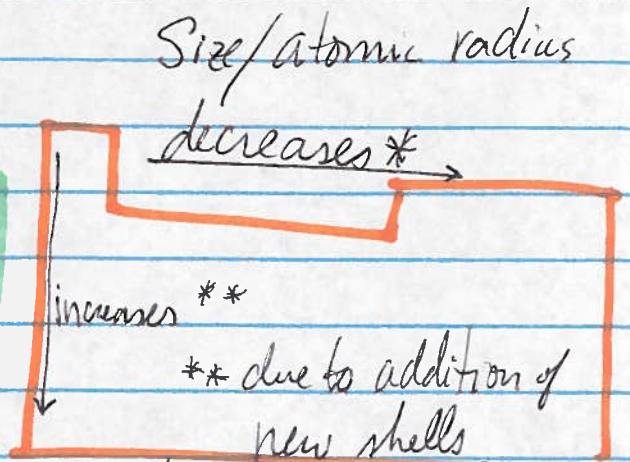 Size/atomic radius
decreases *
increases **
** due to addition of
new shells